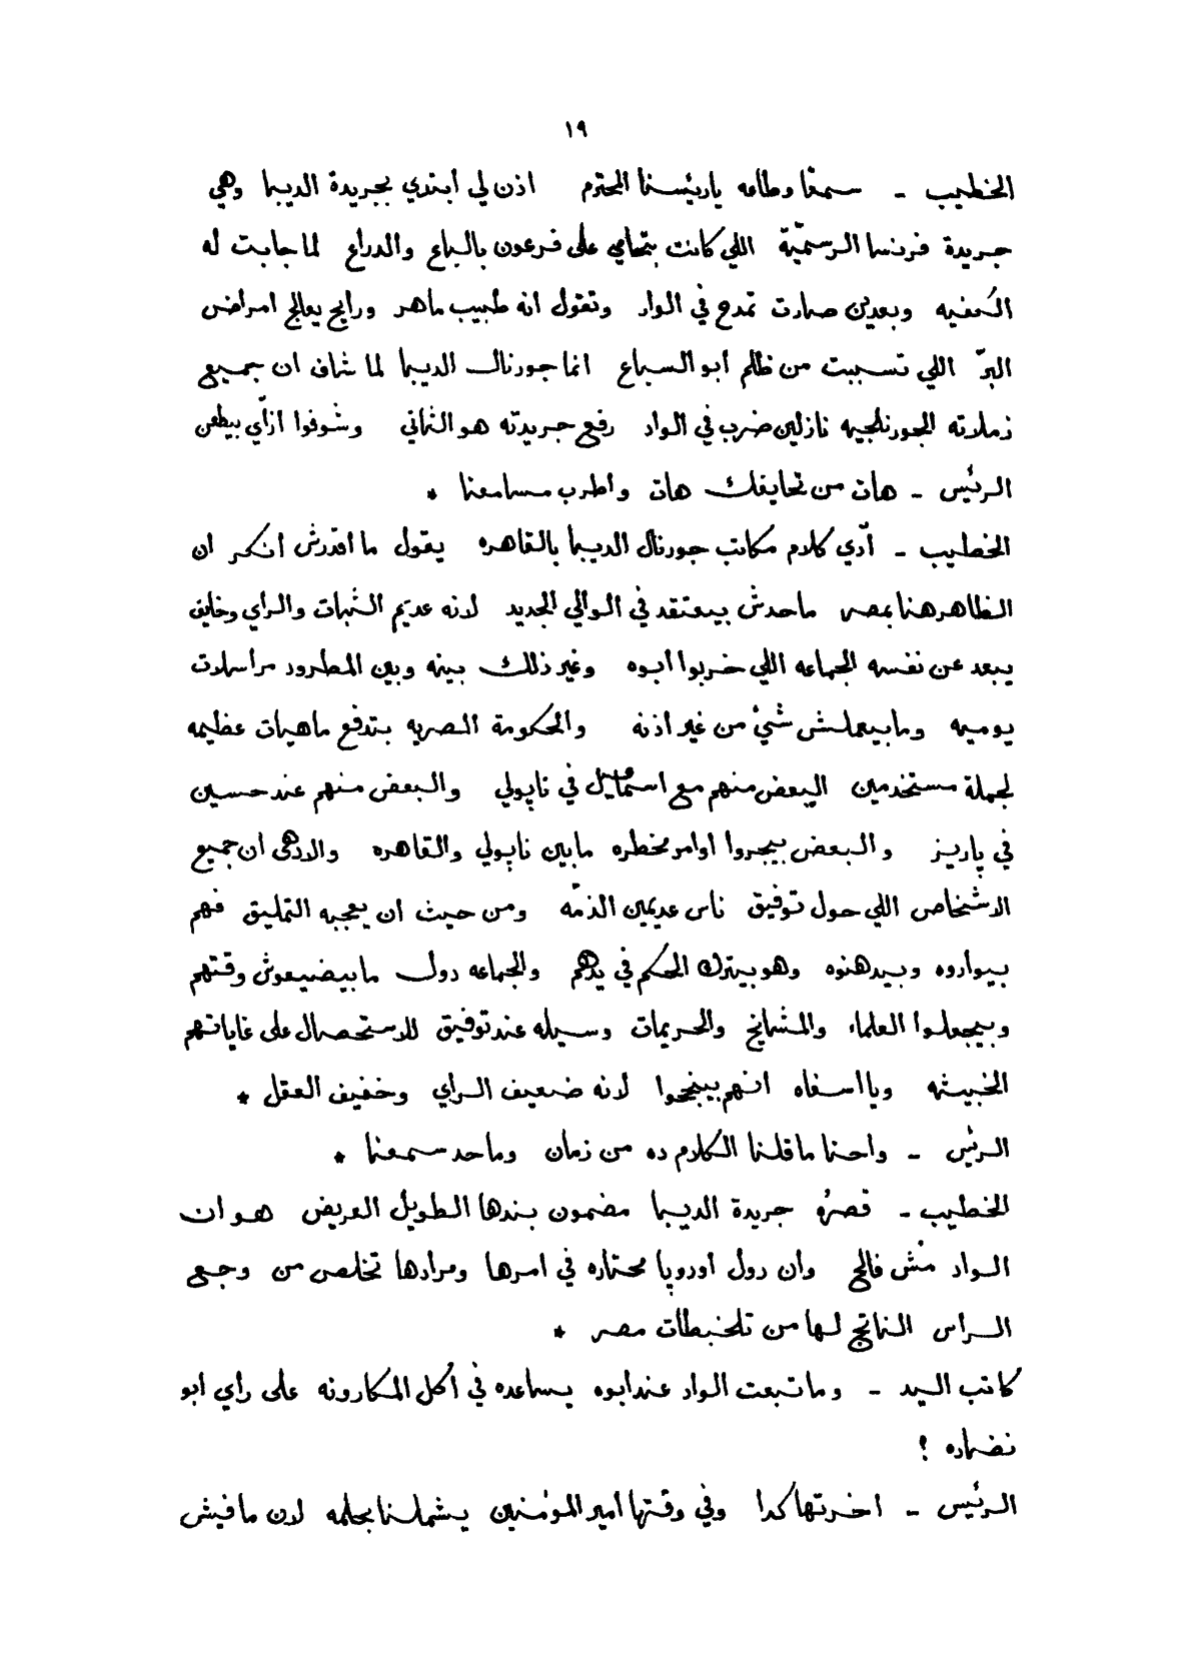 ١٩
الخطيب ـ سمعًا وطاعه ياريئسنا المحترم اذن لي أبتدي بجريدة الديبا وهي
جريدة فرنسا الرسميّة اللي كانت بتحامي على فرعون بالباع والدراع لما جابت له
الكفيه وبعدين صارت تمدح في الواد وتقول انه طبيب ماهر ورايح يعالج امراض
البرّ اللي تسببت من ظلم أبو السباع انما جورنال الديبا لما شاف ان جميع
زملاته الجورنلجيه نازلين ضرب في الواد رفع جريدته هو الثاني وشوفوا ازّاي بيطعن
الرئيس ـ هات من تحايفك هات وأطرب مسامعنا *
الخطيب ـ أدّي كلام مكاتب جورنال الديبا بالقاهره يقول ما اقدرش أنكر ان
الظاهر هنا بمصر ماحدش بيعتقد في الوالي الجديد لانه عديم الثبات والراي وخايف
يبعد عن نفسه الجماعه اللي خربوا أبوه وغير ذلك بينه وبين المطرود مراسلات
يوميه ومابيعملش شئ من غير اذنه والحكومة المصريه بتدفع ماهيات عظيمه
لجملة مستخدمين البعض منهم مع اسماعيل في ناپولي والبعض منهم عند حسين
في پاريز والبعض بيجروا اوامر مخطره مابين ناپولي والقاهره والادهى ان جميع
الاشخاص اللي حول توفيق ناس عديمين الذمّه ومن حيث ان يعجبه التمليق فهم
بيواروه وبيدهنوه وهو بيترك الحكم في يدهم والجماعه دول مابيضيعوش وقتهم
وبيجعلوا العلماء والمشايخ والحريمات وسيله عند توفيق للاستحصال على غاياتهم
الخبيثه ويا اسفاه انهم بينجحوا لانه ضعيف الراي وخفيف العقل *
الرئيس ـ واحنا ماقلنا الكلام ده من زمان وماحد سمعنا *
الخطيب ـ قصرُه جريدة الديبا مضمون بندها الطويل العريض هو ان
الواد مُش فالح وان دول اوروپا محتاره في امرها ومرادها تخلص من وجع
الراس الناتج لها من تلخبطات مصر *
كاتب السيد ـ وماتبعت الواد عند أبوه يساعده في أكل المكارونه على راي أبو
نضاره ؟
الرئيس ـ اخرتها كدا وفي وقتها أمير المؤمنين يشملنا بحلمه لان مافيش